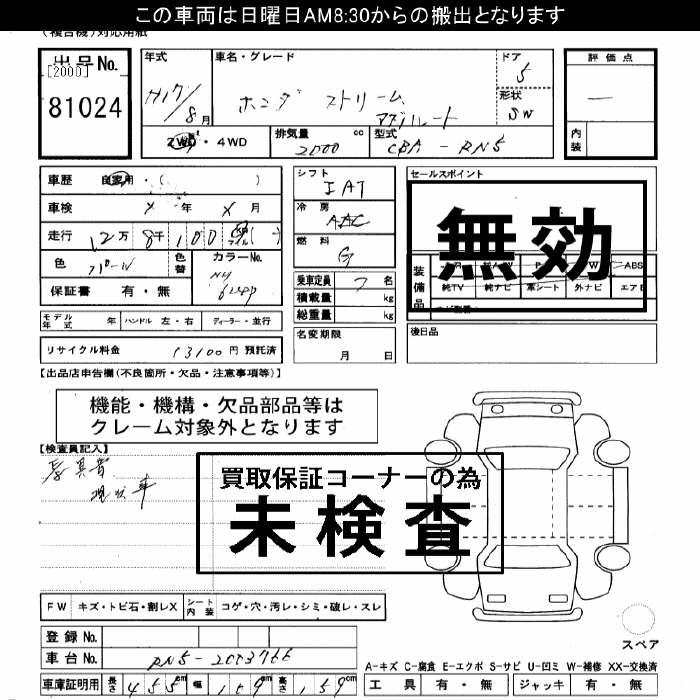 この車両は日曜日AM8:30からの搬出となります
(複合機)対応用紙
出品No.
[2000]
81024
年式
H17/8月
車名・グレード
ホンダ ストリーム
アブソルート
ドア
5
形状
SW
評価点
—
内装
2WD・4WD
排気量 2000 cc
型式 CBA-RN5
車歴 自家用・( )
車検 年 月
走行 12万8千100
マイル
色
色替
カラーNo.
NH
保証書 有・無
シフト
IAT
冷房
AAC
燃料
G
乗車定員 7名
積載量 kg
総重量 kg
名変期限
月 日
セールスポイント
無効
装備品
ABS
純TV 純ナビ 革シート 外ナビ エアB
後日品
モデル年式 年 ハンドル 左・右 ディーラー・並行
リサイクル料金 13100円 預託済
【出品店申告欄(不良箇所・欠品・注意事項等)】
機能・機構・欠品部品等は
クレーム対象外となります
【検査員記入】
現状車
買取保証コーナーの為
未検査
FW キズ・トビ石・割レX シート内装 コゲ・穴・汚レ・シミ・破レ・スレ
登録No.
車台No. RN5-2003766
車庫証明用 長さ 455cm 幅 169cm 高さ 159cm
スペア
A-キズ C-腐食 E-エクボ S-サビ U-凹ミ W-補修 XX-交換済
工具 有・無 ジャッキ 有・無